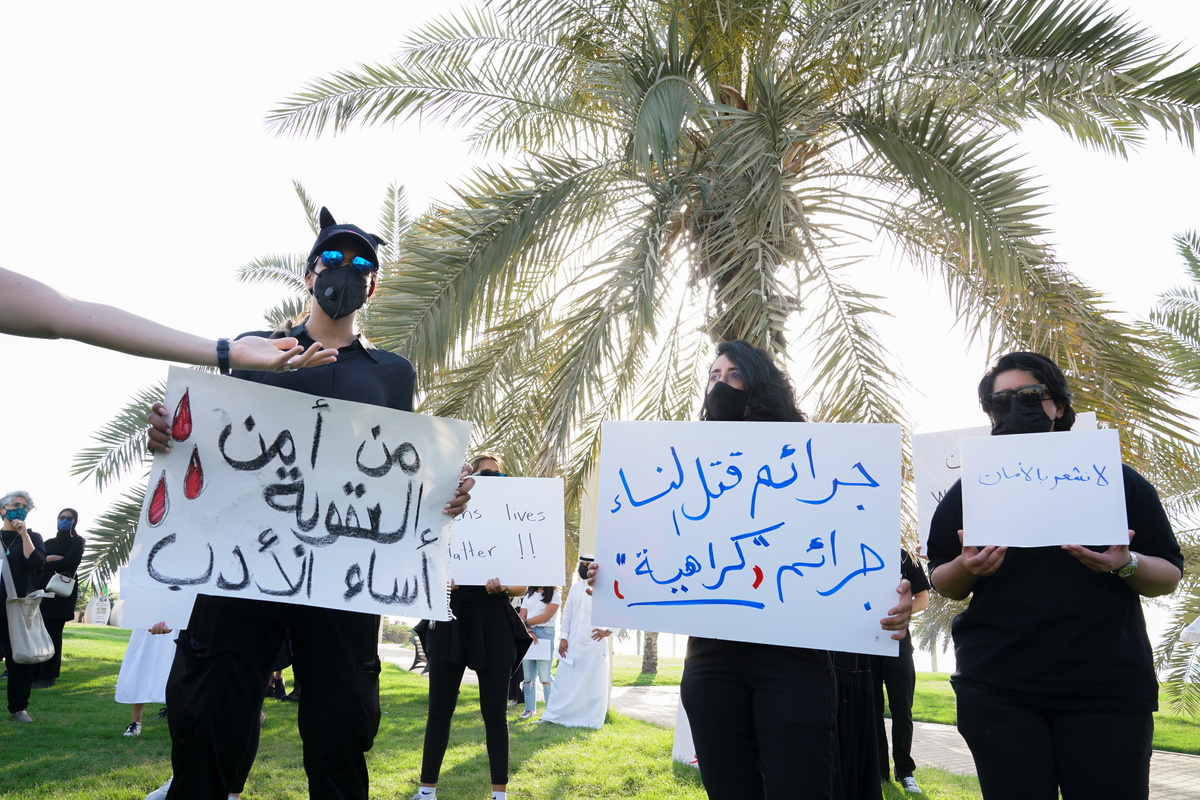 من أمن
العقوبة
أساء الأدب
ens lives
atter !!
جرائم قتل النساء
جرائم ("كراهية")
لا نشعر بالأمان